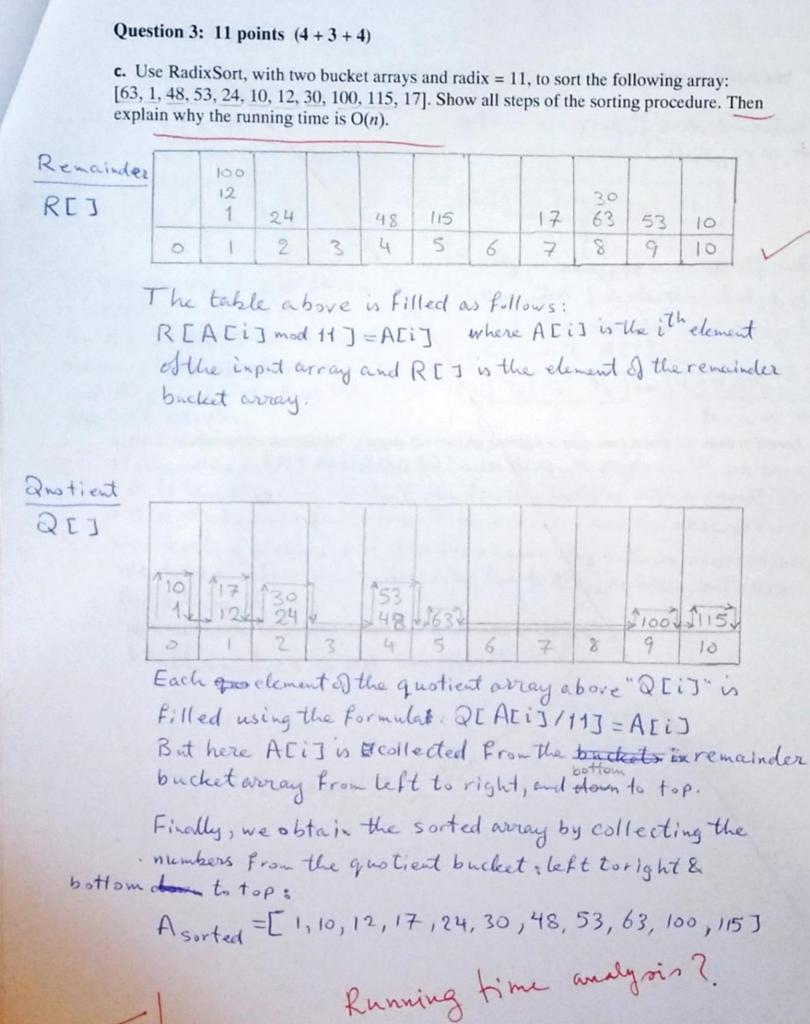 Question 3: 11 points (4 + 3 + 4)
c. Use RadixSort, with two bucket arrays and radix = 11, to sort the following array:
[63, 1, 48, 53, 24, 10, 12, 30, 100, 115, 17]. Show all steps of the sorting procedure. Then
explain why the running time is O(n).
Remainder
R[ ]
100
12 30
1 24 48 115 17 63 53 10
0 1 2 3 4 5 6 7 8 9 10
The table above is filled as follows:
R[A[i] mod 11] = A[i] where A[i] is the ith element
of the input array and R[ ] is the element of the remainder
bucket array.
Quotient
Q[ ]
10 17 30 53
1 12 24 48 63 100 115
0 1 2 3 4 5 6 7 8 9 10
Each element of the quotient array above "Q[i]" is
filled using the formula. Q[A[i]/11] = A[i]
But here A[i] is collected from the buckets in remainder
bucket array from left to right, and down bottom to top.
Finally, we obtain the sorted array by collecting the
numbers from the quotient bucket, left to right &
bottom down to top:
A sorted = [1, 10, 12, 17, 24, 30, 48, 53, 63, 100, 115]
Running time analysis?
-1